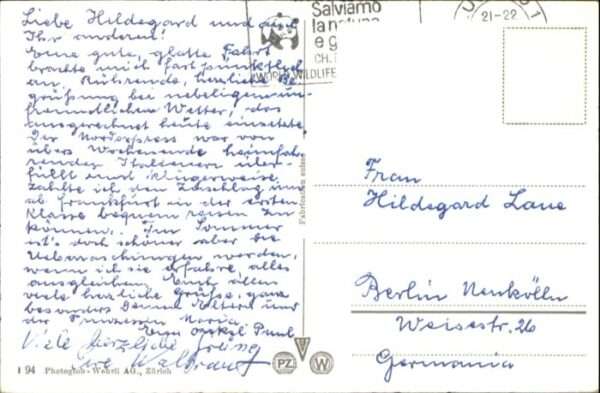 Liebe Hildegard und auch
Ihr anderen!
Eine gute, glatte Fahrt
brachte mich fast pünktlich
an. Rührende, herzliche Be
grüßung bei nebeligem un-
freundlichen Wetter, das
ausgerechnet heute einsetzte.
Der Nordexpress war von
übers Wochenende heimfah
renden Italienern über-
füllt und klugerweise
zahlte ich den Zuschlag um
ab Frankfurt in der ersten
Klasse bequem reisen zu
können. Im Sommer
ist's doch schöner aber die
Uebernachtungen werden,
wenn ich sie erfahre, alles
ausgleichen. Euch allen
viele herzliche Grüße, ganz
besonders Deinen Eltern und
der Prinzessin Maria
Euer Onkel Paul
Viele herzliche Grüße
Salviamo
la natura
e g
CH.
WORLD WILDLIFE
21-22
1
Fabrication suisse
Frau
Hildegard Lane
Berlin Neukölln
Weisestr. 26
Germania
PZ
W
I 94 Photoglob-Wehrli AG., Zürich